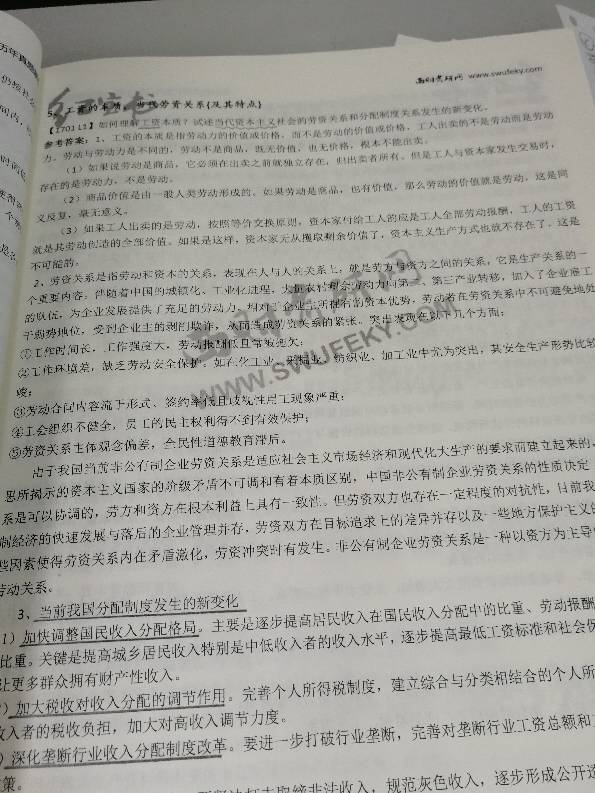 西财考研网 www.swufeky.com
5、工资的本质，当代劳资关系{及其特点}
【1701 L1】如何理解工资本质？试述当代资本主义社会的劳资关系和分配制度关系发生的新变化。
参考答案：1、工资的本质是指劳动力的价值或价格，而不是劳动的价值或价格，工人出卖的不是劳动而是劳动
力，劳动与劳动力是不同的，劳动不是商品，既无价值，也无价格，根本不能出卖。
（1）如果说劳动是商品，它必须在出卖之前就独立存在，归出卖者所有。但是工人与资本家发生交易时，
存在的是劳动力，不是劳动。
（2）商品价值是由一般人类劳动形成的。如果劳动是商品，也有价值，那么劳动的价值就是劳动，这是同
义反复，毫无意义。
（3）如果工人出卖的是劳动，按照等价交换原则，资本家付给工人的应是工人全部劳动报酬，工人的工资
就是其劳动创造的全部价值。如果是这样，资本家无从攫取剩余价值了，资本主义生产方式也就不存在了，这是
不可能的。
2、劳资关系是指劳动和资本的关系，表现在人与人的关系上，就是劳方与资方之间的关系，它是生产关系的一
个重要内容。伴随着中国的城镇化、工业化进程，大量农村剩余劳动力向第二、第三产业转移，加入了企业雇工
的队伍，为企业发展提供了充足的劳动力。相对于企业主所拥有的资本优势，劳动者在劳资关系中不可避免地处
于弱势地位，受到企业主的剥削欺诈，从而造成劳资关系的紧张。突出表现在以下几个方面：
①工作时间长，工作强度大，劳动报酬低且常被拖欠；
②工作环境差，缺乏劳动安全保护。如在化工业、采掘业、纺织业、加工业中尤为突出，其安全生产形势比较
峻；
③劳动合同内容流于形式、签约率低且歧视性用工现象严重；
④工会组织不健全，员工的民主权利得不到有效保护；
⑤劳资关系主体观念偏差，全民性道德教育滞后。
由于我国当前非公有制企业劳资关系是适应社会主义市场经济和现代化大生产的要求而建立起来的，
思所揭示的资本主义国家的阶级矛盾不可调和有着本质区别，中国非公有制企业劳资关系的性质决定
系是可以协调的，劳方和资方在根本利益上具有一致性。但劳资双方也存在一定程度的对抗性，目前我
制经济的快速发展与落后的企业管理并存，劳资双方在目标追求上的差异并存以及一些地方保护主义的
些因素使得劳资关系内在矛盾激化，劳资冲突时有发生。非公有制企业劳资关系是一种以资方为主导
劳动关系。
3、当前我国分配制度发生的新变化
1）加快调整国民收入分配格局。主要是逐步提高居民收入在国民收入分配中的比重、劳动报酬
比重。关键是提高城乡居民收入特别是中低收入者的收入水平，逐步提高最低工资标准和社会保
让更多群众拥有财产性收入。
）加大税收对收入分配的调节作用。完善个人所得税制度，建立综合与分类相结合的个人所
收入者的税收负担，加大对高收入调节力度。
）深化垄断行业收入分配制度改革。要进一步打破行业垄断，完善对垄断行业工资总额和工
策。
打击取缔非法收入，规范灰色收入，逐步形成公开透
WWW.SWUFEKY.COM